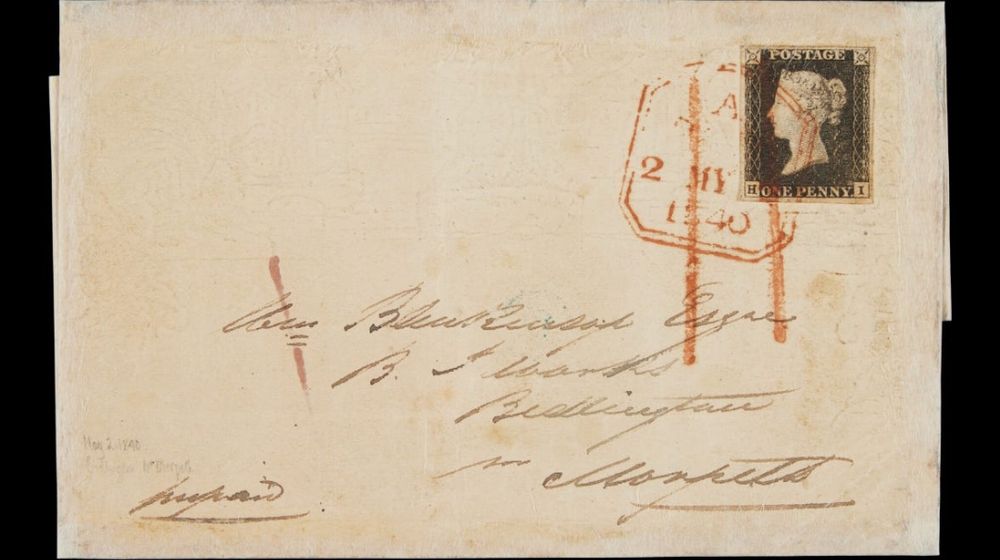 POSTAGE
H ONE PENNY I
A
2 MY
1840
Wm Blenkinsop Esqre
B. I Works
Bedlington
nr Morpeth
May 2 1840
prepaid